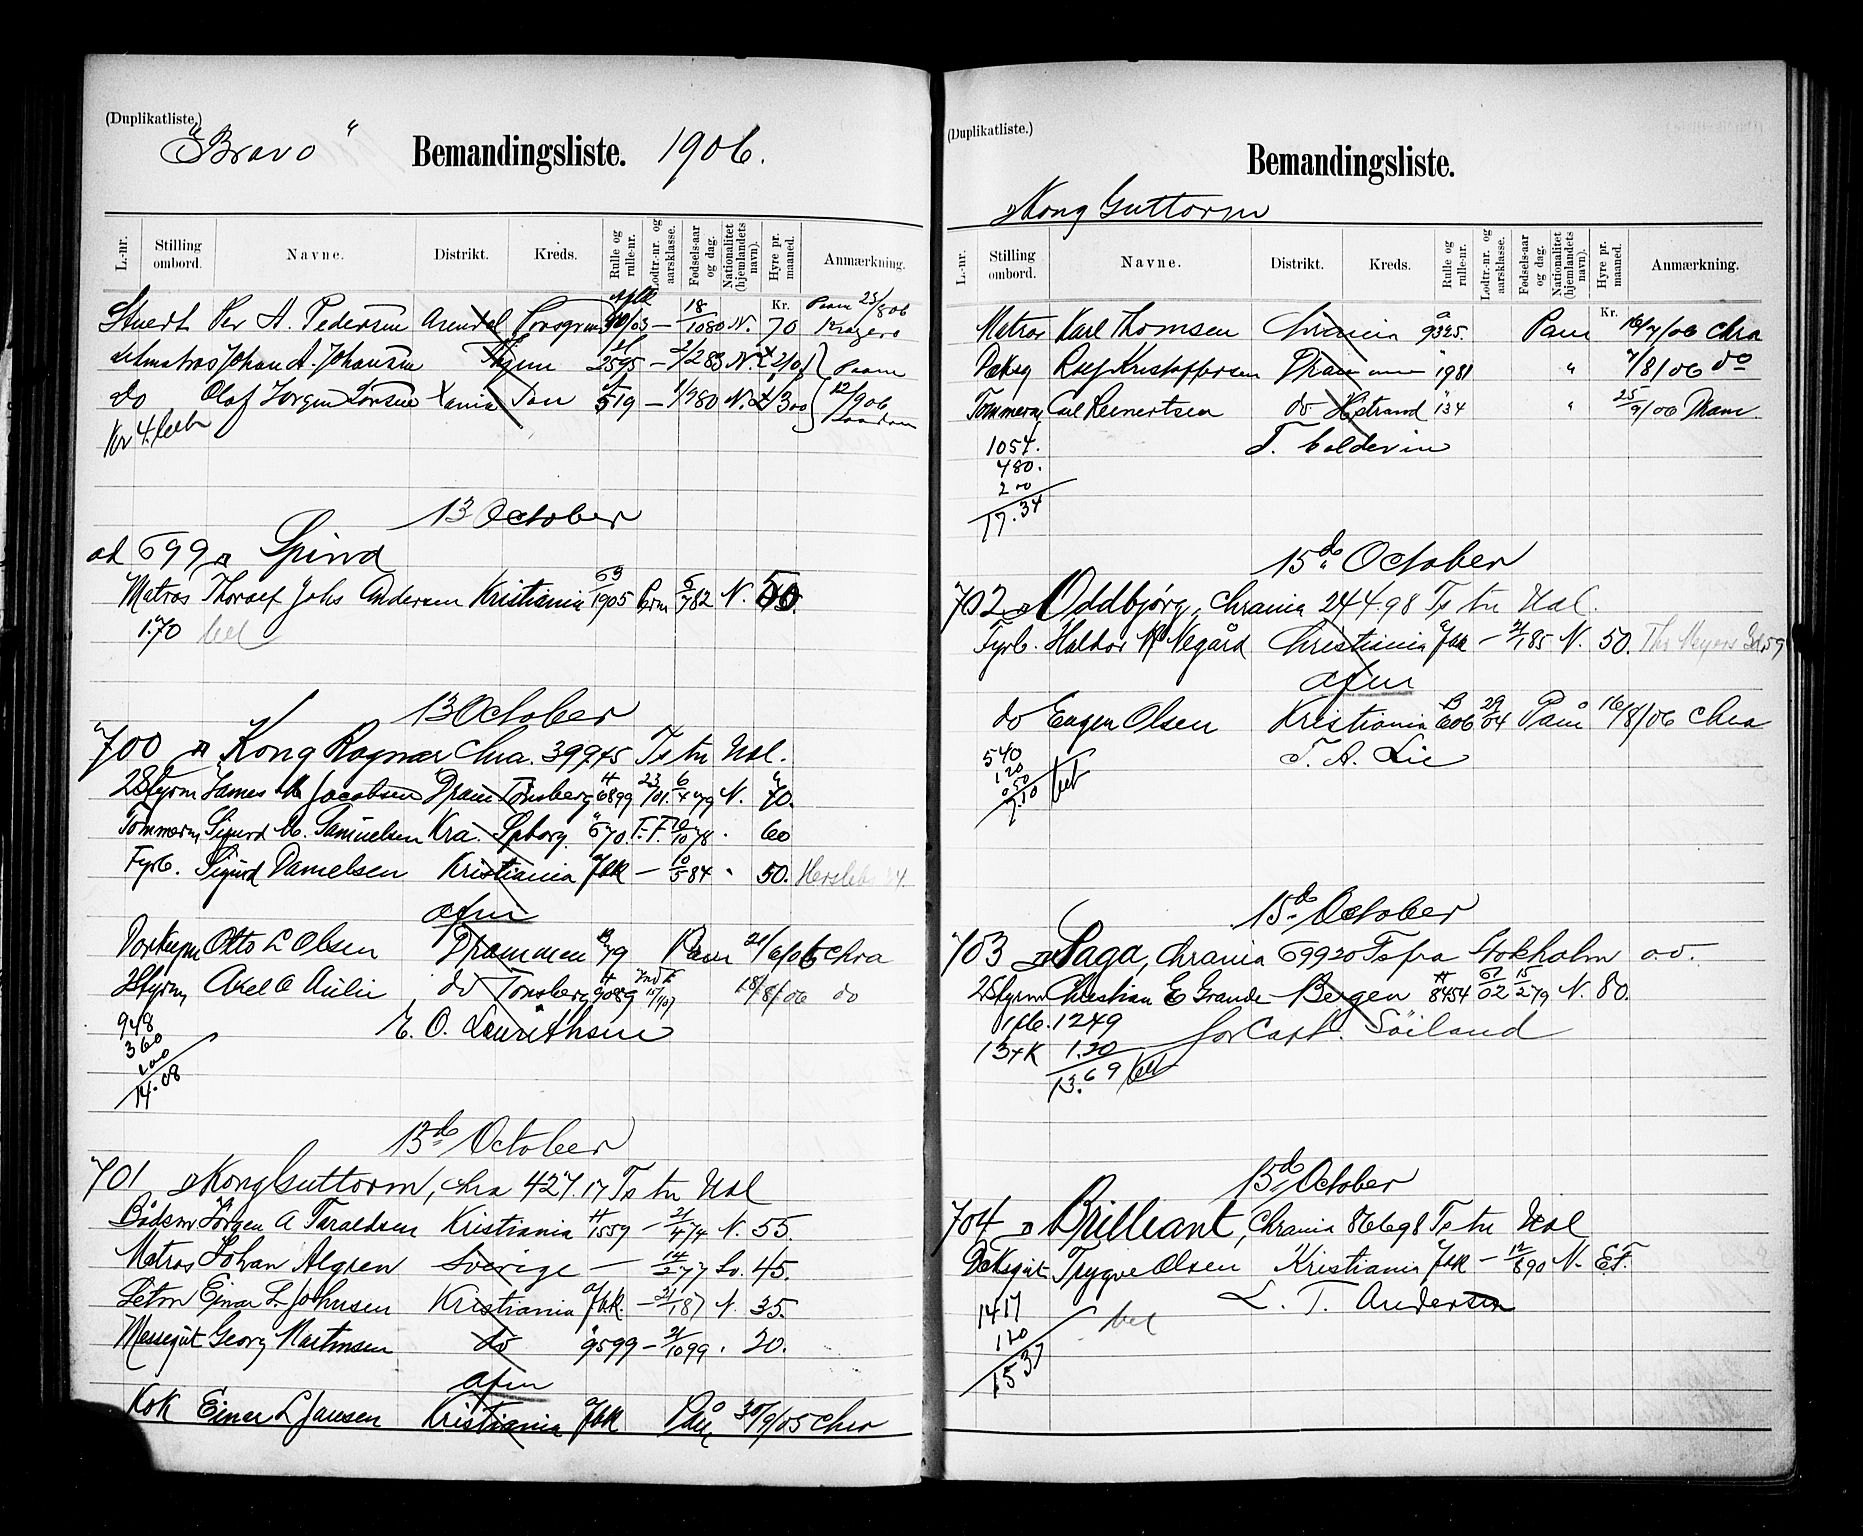 (Duplikatliste.)
"Bravo" Bemandingsliste. 1906.
L.-nr. Stilling ombord. Navne. Distrikt. Kreds. Rulle og rulle-nr. Lodtr.-nr. og aarsklasse. Fødsels-aar og dag. Nationalitet (hjemlandets navn). Hyre pr. maaned. Anmærkning.
Kr.
Stuert Per A. Pedersen Arendal Porsgrun 18/1080 N. 70 Paam 23/8 06 Kragerø
Johan A. Johansen 2595 — 2/283 N.
do Olaf Jørgen Xania 519 — 1/980 N. 12/9 06
13 October
ad 699 D Spind
Matros Thoralf Johs Andersen Kristiania 63/1905 6/782 N. 50.
1.70 bet
13 October
700 D Kong Ragnar Chra. 399.45 Ts tr Ual.
2 Styrm James M Jacobsen Dram Tønsberg 6899 23/01. 6/479 N. 70.
Tømmerm Sigurd M. Samuelsen Kra. Spborg. 670. T.F. 10/1078 . 60
Fyrb. Sigurd Danielsen Kristiania Ibk — 10/584 . 50.
afm
Otto L Olsen Drammen 79 Paam 21/6/06 Chra
2 Styrm Axel O Aulie do Tønsberg 9089 18/8/06 do
948
360
100
14.08
E. O. Laurithsen
13de October
701 D Kong Guttorm, Chra 427.17 Ts tr Ual
Bådsm Jörgen A Taraldsen Kristiania 1559 — 21/474 N. 55.
Matros Johan Algren Sverige — 14/277 Sv. 45.
Letm Ejnar L. Johnsen Kristiania Ibk. — 21/187 N. 35.
Messegut Georg Martinsen do 9599 — 21/1099 . 20.
afm
Kok Einar L Jansen Kristiania Ibk Påm 30/9/05 Chra
(Duplikatliste.)
Bemandingsliste.
D Kong Guttorm
L.-nr. Stilling ombord. Navne. Distrikt. Kreds. Rulle og rulle-nr. Lodtr.-nr. og aarsklasse. Fødsels-aar og dag. Nationalitet (hjemlandets navn). Hyre pr. maaned. Anmærkning.
Kr.
Matros Karl Thomsen Chrania 9325. Paam 16/7/06 Chra
Deksg Rolf Kristoffersen Drammen 1981 " 7/8/06 do
Tømmerm Carl Reinertsen do Hstrand 134 " 25/9/06 Dram.
1054.
480.
200
17.34
T. Coldevin
15de October
702 D Oddbjørg, Chrania 244.98 Ts tr Ual.
Fyrb. Haldor Negård Christiania Ibk — 21/185 N. 50.
afm
do Eugen Olsen Kristiania 606 29/04 Påm 16/8/06 Chra
540
120
0.50
7.10 bet
T. A. Lie
15de October
703 D Saga, Chrania 699.20 Ts fra Stokholm o.v.
2 Styrm Christian E Grande Bergen 8454 67/02 15/279 N. 80.
1249
1.20
13.69 bet
for Capt. Söiland
15de October
704 D Brilliant, Chrania 866.98 Ts tr Ual
Deksgut Trygve Olsen Kristiania Ibk — 12/890 N. E.F.
1417
120
1537 bet
L. T. Andersen